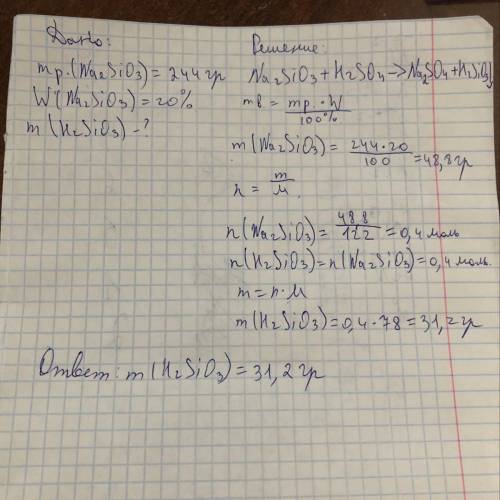 Дано:
mр.(Na2SiO3) = 244 гр
W(Na2SiO3) = 20%
m(H2SiO3) - ?
Решение:
Na2SiO3 + H2SO4 -> Na2SO4 + H2SiO3↓
mв = mр.·W / 100%
m(Na2SiO3) = 244·20 / 100 = 48,8 гр
n = m / M.
n(Na2SiO3) = 48 8 / 122 = 0,4 моль
n(H2SiO3) = n(Na2SiO3) = 0,4 моль.
m = n·M
m(H2SiO3) = 0,4·78 = 31,2 гр
Ответ: m(H2SiO3) = 31,2 гр